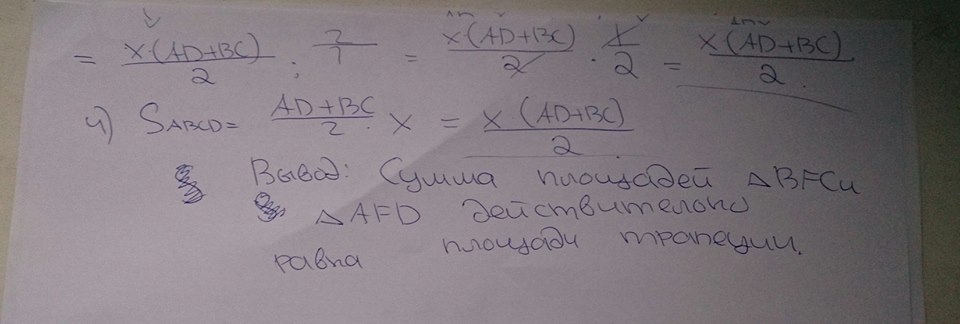 = x·(AD+BC)/2 : 2/1 = x·(AD+BC)/2 · 1/2 = x(AD+BC)/2.
4) SABCD = AD+BC/2 · x = x (AD+BC)/2.
Вывод: Сумма площадей △BFC и
△AFD действительно
равна площади трапеции.